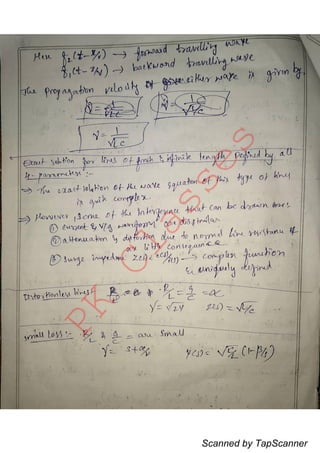 Here f2(t - x/v) → forward travelling wave
f1(t - x/v) → backward travelling wave
The propagation velocity of either wave is given by.
γ = 1/√LC
Exact solution for lines of finite & infinite length Defined by all
4- parameters :-
→ The exact solution of the wave equation of this type of lines
is quite complex.
→ However, some of the Interference that can be drawn ares
① current & v/g waveforms are dissimilar
② attenuation & distortion due to normal line resistance
ar little consequence
③ surge impedance Z(s) = complex function
& uniquely defined
Distortionless lines: R/L = G/C = α
Z(s) = √L/C
small loss :- R/L & G/C = are small
PK Classes
Scanned by TapScanner